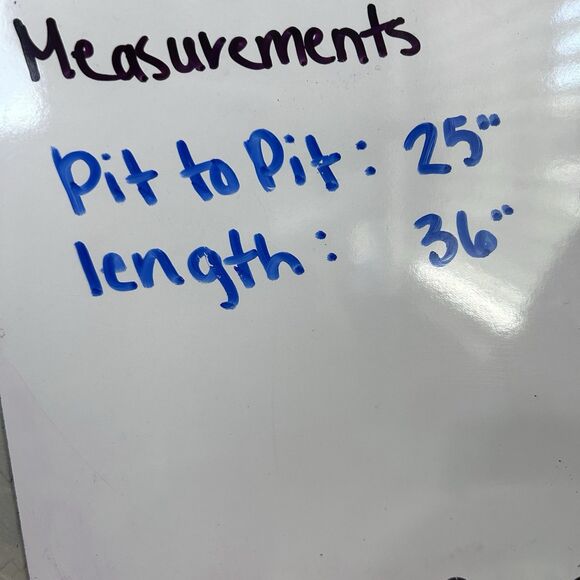 Measurements
Pit to Pit: 25"
length: 36"